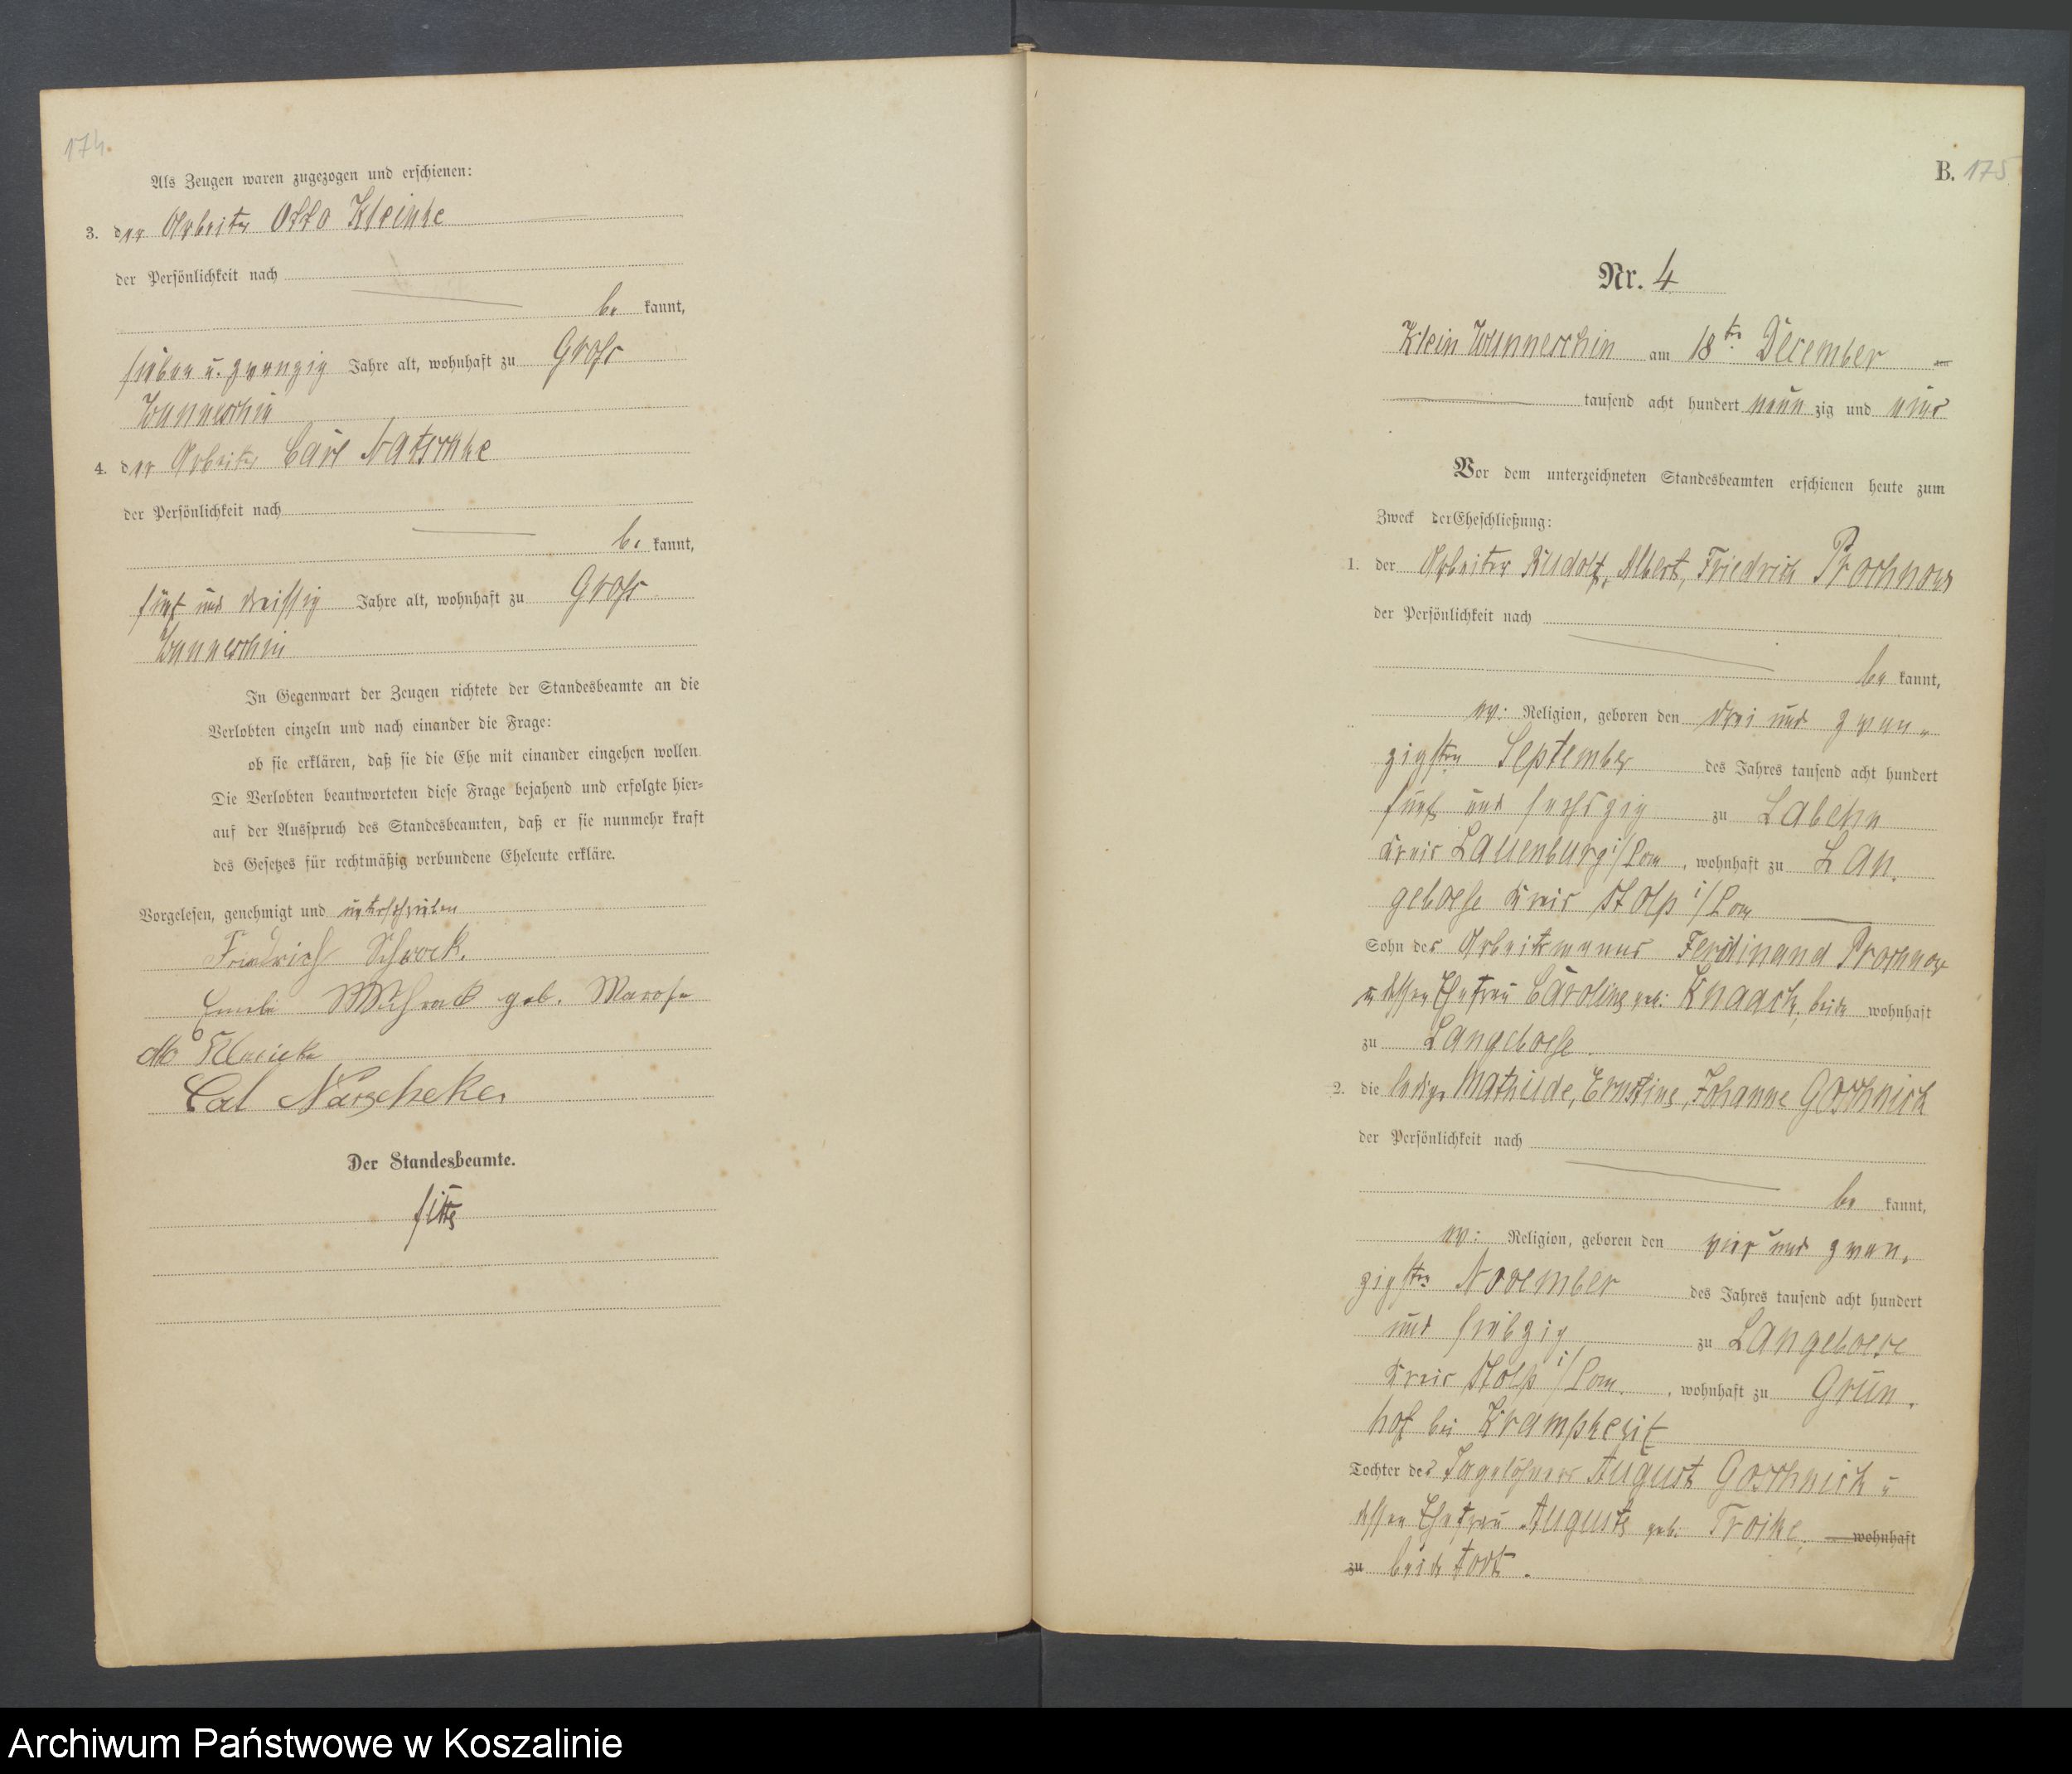 174.
Als Zeugen waren zugezogen und erschienen:
3. der Arbeiter Otto Kleinke
der Persönlichkeit nach
be kannt,
sieben u. zwanzig Jahre alt, wohnhaft zu Gross
Wunneschin
4. der Arbeiter Carl Natschke
der Persönlichkeit nach
be kannt,
fünf und dreissig Jahre alt, wohnhaft zu Gross
Wunneschin
In Gegenwart der Zeugen richtete der Standesbeamte an die
Verlobten einzeln und nach einander die Frage:
ob sie erklären, daß sie die Ehe mit einander eingehen wollen
Die Verlobten beantworteten diese Frage bejahend und erfolgte hier-
auf der Ausspruch des Standesbeamten, daß er sie nunmehr kraft
des Gesetzes für rechtmäßig verbundene Eheleute erkläre.
Vorgelesen, genehmigt und unterschrieben
Friedrich Schrock.
geb.
Der Standesbeamte.
B. 175
Nr. 4
Klein Wunneschin am 18ten December
tausend acht hundert neun zig und eins
Vor dem unterzeichneten Standesbeamten erschienen heute zum
Zweck der Eheschließung:
1. der Arbeiter Rudolf, Albert, Friedrich Prochnow
der Persönlichkeit nach
be kannt,
ev: Religion, geboren den drei und zwan-
zigsten September des Jahres tausend acht hundert
fünf und sechszig zu Labehn
Kreis Lauenburg i/Pom, wohnhaft zu Lan-
geboese Kreis Stolp i/Pom
Sohn des Arbeitsmanns Ferdinand Prochnow
u dessen Ehefrau Caroline geb: Knaack, beide wohnhaft
zu Langeboese.
2. die ledige Mathilde, Ernstine, Johanne Goschnick
der Persönlichkeit nach
be kannt,
ev: Religion, geboren den vier und zwan-
zigsten November des Jahres tausend acht hundert
und siebzig zu Langeboese
Kreis Stolp i/Pom., wohnhaft zu Grün-
hof bei Krampkewitz
Tochter des Tagelöhners August Goschnick u
dessen Ehefrau Auguste geb: Troike, wohnhaft
zu beide todt.
Archiwum Państwowe w Koszalinie